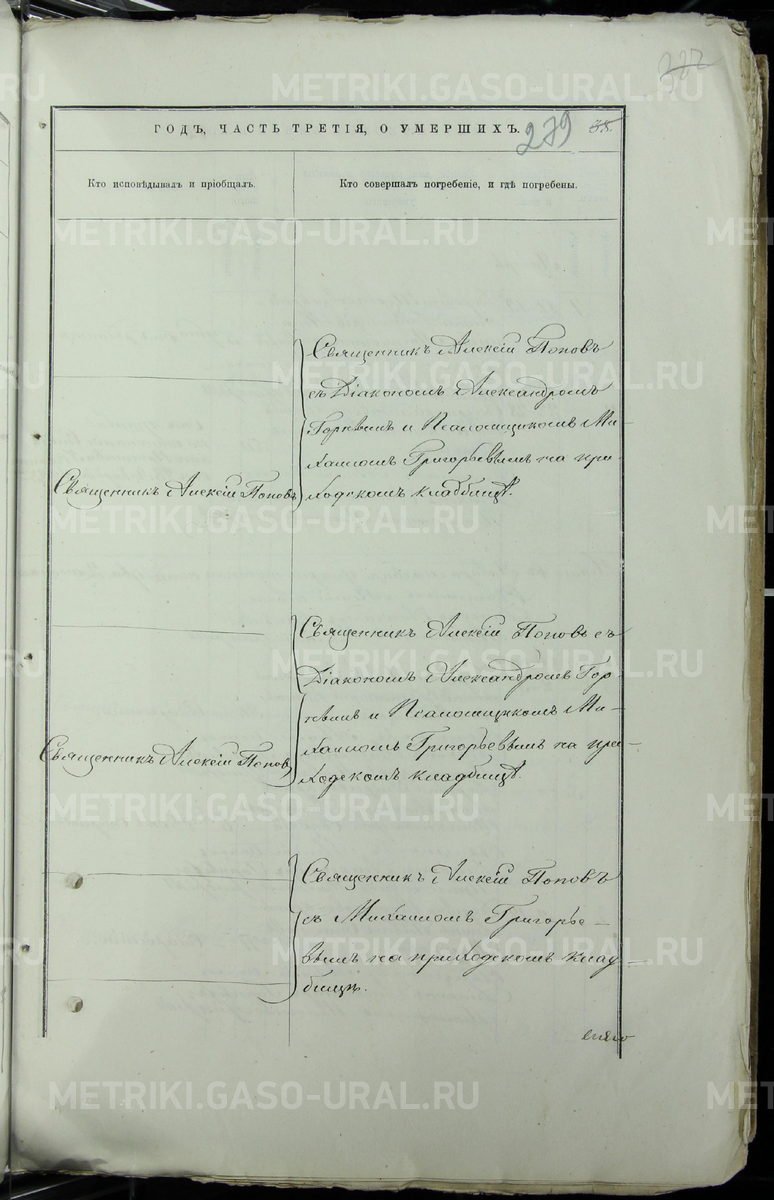 METRIKI.GASO-URAL.RU
ГОДЪ, ЧАСТЬ ТРЕТІЯ, О УМЕРШИХЪ.
279
Кто исповѣдывалъ и пріобщалъ.
Кто совершалъ погребеніе, и гдѣ погребены.
Священникъ Алексій Поповъ
съ Діакономъ Александромъ
и Псаломщикомъ Ми-
хаиломъ Григорьевымъ на при-
ходскомъ кладбищѣ.
Священникъ Алексій Поповъ
Священникъ Алексій Поповъ съ
Діакономъ Александромъ Гор-
и Псаломщикомъ Ми-
хаиломъ Григорьевымъ на при-
ходскомъ кладбищѣ.
Священникъ Алексій Поповъ
Священникъ Алексій Поповъ
съ Михаиломъ Григорье-
вымъ на приходскомъ клад-
бищѣ.